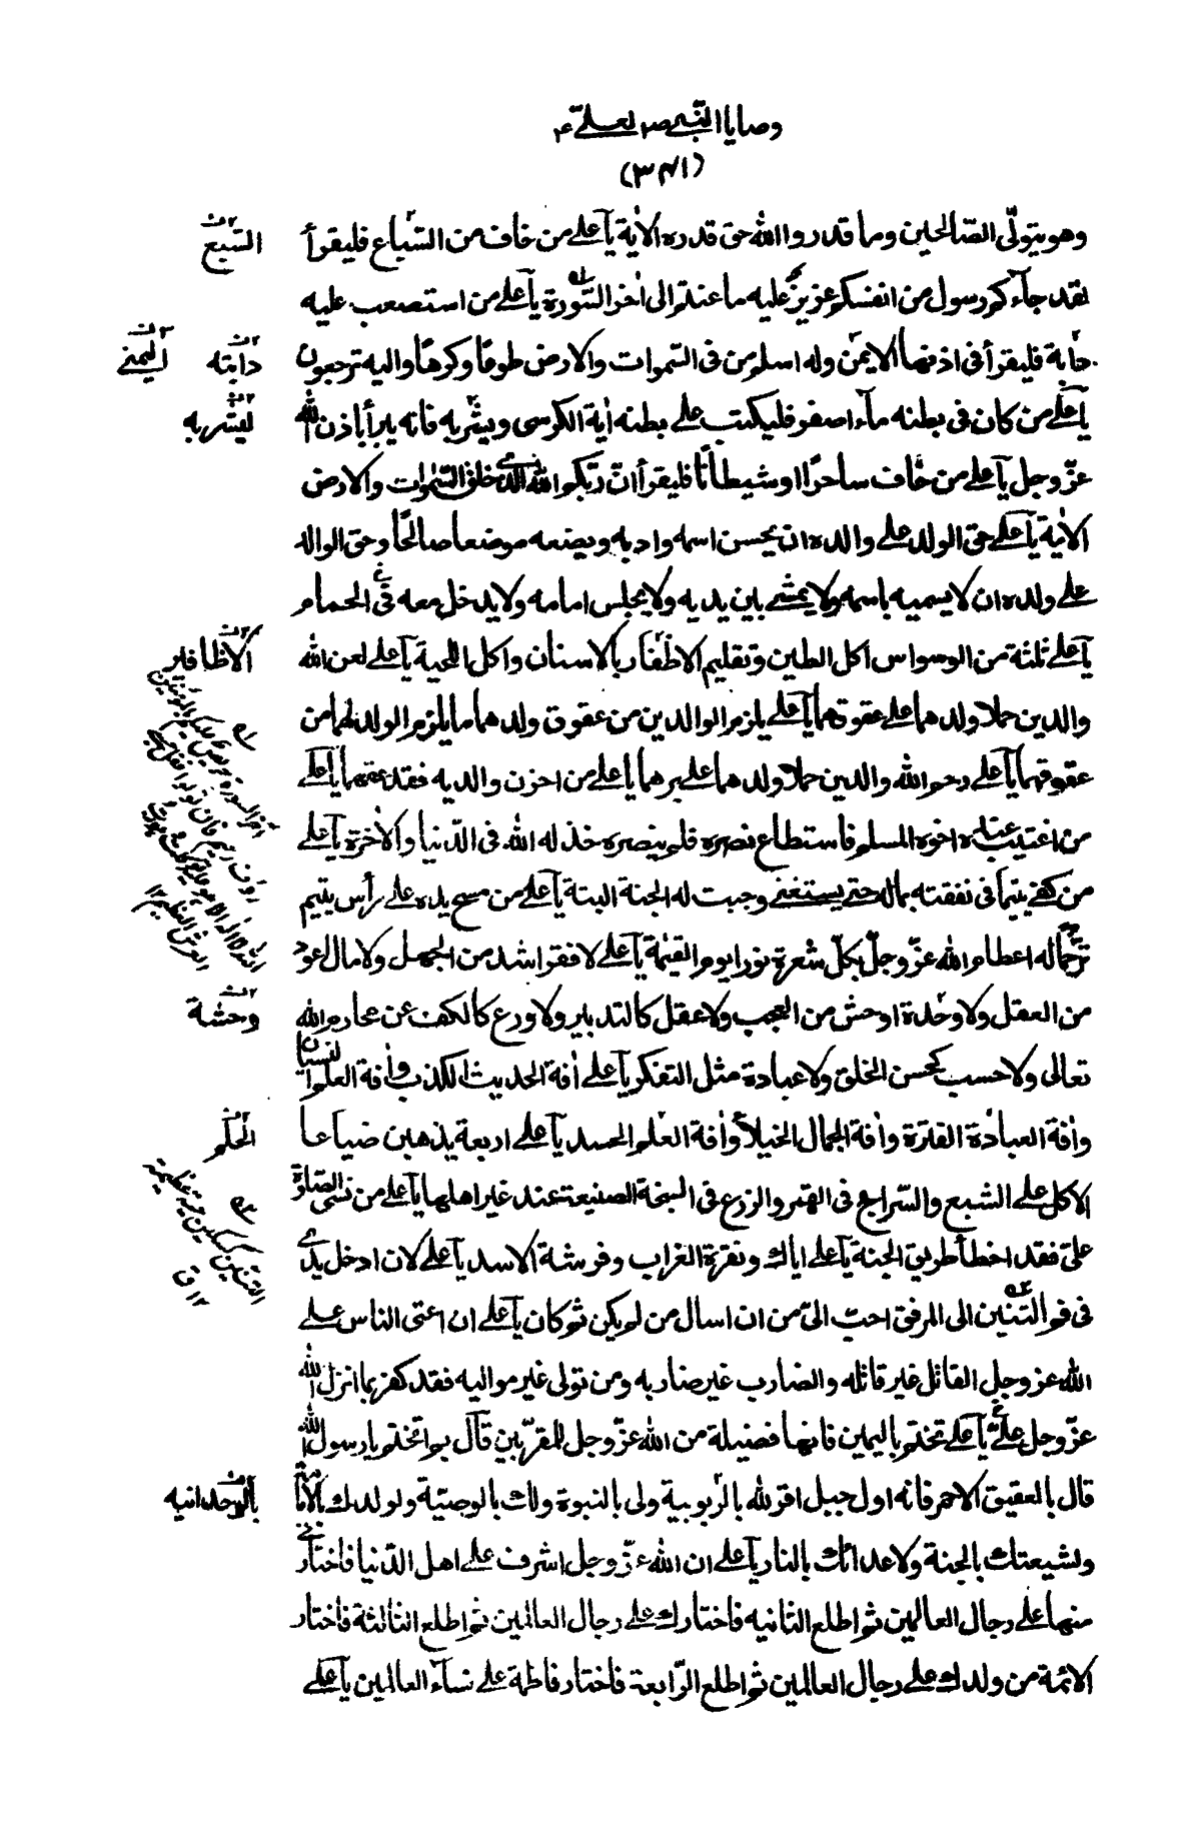 وصايا النبي ص لعلي ع
(٣٤١)
وهو يتولّى الصّالحين وما قدروا الله حق قدره الاٰية يآ علي من خاف من السّباع فليقرأ
لقد جآءكم رسول من انفسكم عزيز عليه ما عنتم الى اٰخر السّورة يآ علي من استصعب عليه
دابة فليقرأ في اذنها الايمن وله اسلم من في السّموات والارض طوعًا وكرهًا واليه ترجعون
يآ علي من كان في بطنه مآء اصفر فليكتب على بطنه اٰية الكرسي ويشربه فانه يبرأ باذن الله
عزّ وجل يآ علي من خاف ساحرًا او شيطانًا فليقرأ انّ ربّكم الله الذي خلق السّمٰوات والارض
الاٰية يآ علي حق الولد على والده ان يحسن اسمه وادبه ويضعه موضعا صالحًا وحق الوالد
على ولده ان لا يسميه باسمه ولا يمشي بين يديه ولا يجلس امامه ولا يدخل معه في الحمام
يآ علي ثلثة من الوسواس اكل الطين وتقليم الاظفار بالاسنان واكل اللحية يآ علي لعن الله
والدين حملا ولدهما على عقوقهما يآ علي يلزم الوالدين من عقوق ولدهما ما يلزم الولد لهما من
عقوقهما يآ علي رحم الله والدين حملا ولدهما على برهما يا علي من احزن والديه فقد عقهما يآ علي
من اغتيب عنده اخوه المسلم فاستطاع نصره فلم ينصره خذله الله في الدّنيا والاٰخرة يآ علي
من كفى يتيمًا في نفقته بماله حتى يستغني وجبت له الجنة البتة يآ علي من مسح يده على رأس يتيم
ترحّمًا له اعطاه الله عزّ وجلّ بكلّ شعرة نورا يوم القيٰمة يآ علي لا فقر اشد من الجهل ولا مال اعود
من العقل ولا وحدة اوحش من العجب ولا عقل كالتدبير ولا ورع كالكف عن محارم الله
تعالى ولا حسب كحسن الخلق ولا عبادة مثل التفكر يآ علي اٰفة الحديث الكذب واٰفة العلم النسيان
واٰفة العبادة الفترة واٰفة الجمال الخيلاء واٰفة العلم الحسد يآ علي اربعة يذهبن ضياعا
الاكل على الشبع والسّراج في القمر والزرع في السبخة الصنيعة عند غير اهلها يآ علي من نسي الصلوٰة
عليّ فقد اخطأ طريق الجنة يآ علي اياك ونقرة الغراب وفرشة الاسد يآ علي لان ادخل يدي
في فم التنّين الى المرفق احبّ اليّ من ان اسال من لم يكن ثم كان يآ علي ان اعتى الناس على
الله عز وجل القاتل غير قاتله والضارب غير ضاربه ومن تولى غير مواليه فقد كفر بما انزل الله
عزّ وجل عليّ يآ علي تختم باليمين فانها فضيلة من الله عزّ وجل للمقرّبين قآل بم اتختم يا رسول الله
قال بالعقيق الاحمر فانه اول جبل اقر لله بالرّبوبية ولي بالنبوة ولك بالوصيّة ولولدك بالامامة
ولشيعتك بالجنة ولاعدائك بالنار يآ علي ان الله عزّ وجل اشرف على اهل الدّنيا فاختارني
منها على رجال العالمين ثم اطلع الثانيه فاختارك على رجال العالمين ثم اطلع الثالثة فاختار
الائمة من ولدك على رجال العالمين ثم اطلع الرّابعة فاختار فاطمة على نسآء العالمين يآ علي
السّبع
دابّته
اليمنى
ليشربه
الاظافير
وحشة
الحلم
التنّين كسكين حية عظيمة
١٢ ق
بالوحدانيه